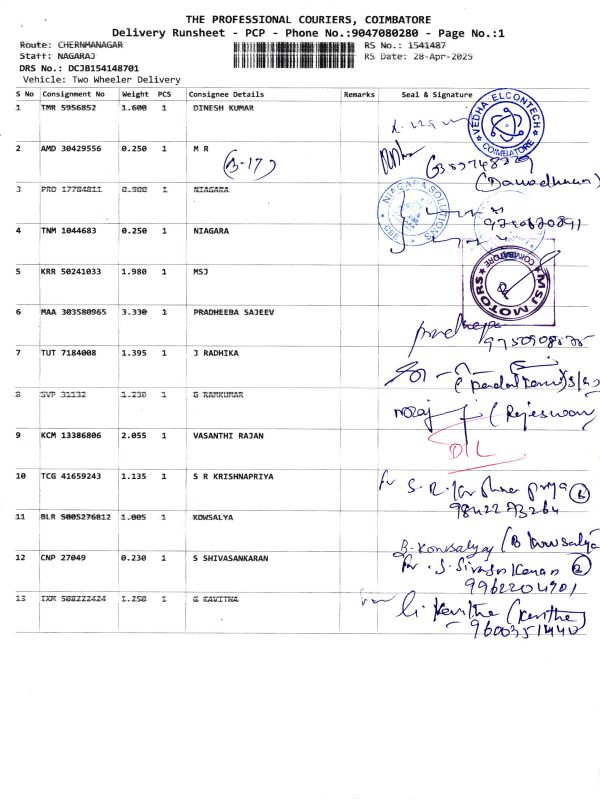 THE PROFESSIONAL COURIERS, COIMBATORE
Delivery Runsheet - PCP - Phone No.:9047080280 - Page No.:1
Route: CHERNMANAGAR RS No.: 1541487
Staff: NAGARAJ RS Date: 28-Apr-2025
DRS No.: DCJB154148701
Vehicle: Two Wheeler Delivery
S No Consignment No Weight PCS Consignee Details Remarks Seal & Signature
1 TMR 5956852 1.600 1 DINESH KUMAR
VEDHA ELCONTECH COIMBATORE
2 AMD 30429556 0.250 1 M R
(B-17)
(Damodharan)
3 PRO 17784811 0.300 1 NIAGARA
NIAGARA SOLUTIONS CBE
4 TNM 1044683 0.250 1 NIAGARA
5 KRR 50241033 1.980 1 MSJ
MSJ MOTORS COIMBATORE
6 MAA 303580965 3.330 1 PRADHEEBA SAJEEV
pradheepa
7 TUT 7184008 1.395 1 J RADHIKA
8 SVP 31132 1.230 1 G RAMKUMAR
(Rajeswari)
9 KCM 13386806 2.055 1 VASANTHI RAJAN
D/L
10 TCG 41659243 1.135 1 S R KRISHNAPRIYA
for S. R. Krishna priya
98422 73264
11 BLR 5005276812 1.005 1 KOWSALYA
B. Kowsalya (B Kowsalya
12 CNP 27049 0.230 1 S SHIVASANKARAN
for . S. Sivasankaran
9962204901
13 IXM 508222424 1.250 1 G KAVITHA
G. Kavitha (Kavitha)
9600351440